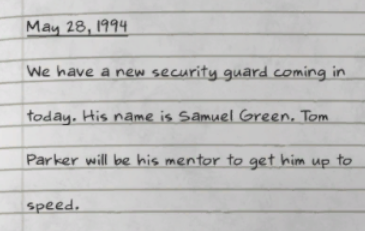 May 28, 1994
We have a new security guard coming in
today. His name is Samuel Green. Tom
Parker will be his mentor to get him up to
speed.